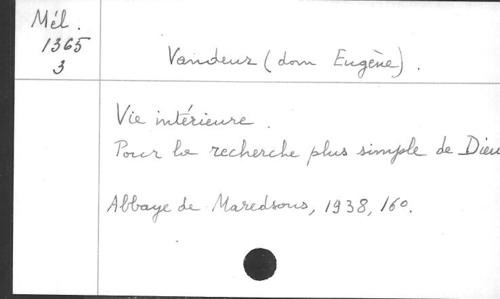 Mél.
1365
3
Vandeur (dom Eugène).
Vie intérieure.
Pour la recherche plus simple de Dieu
Abbaye de Maredsous, 1938, 16o.